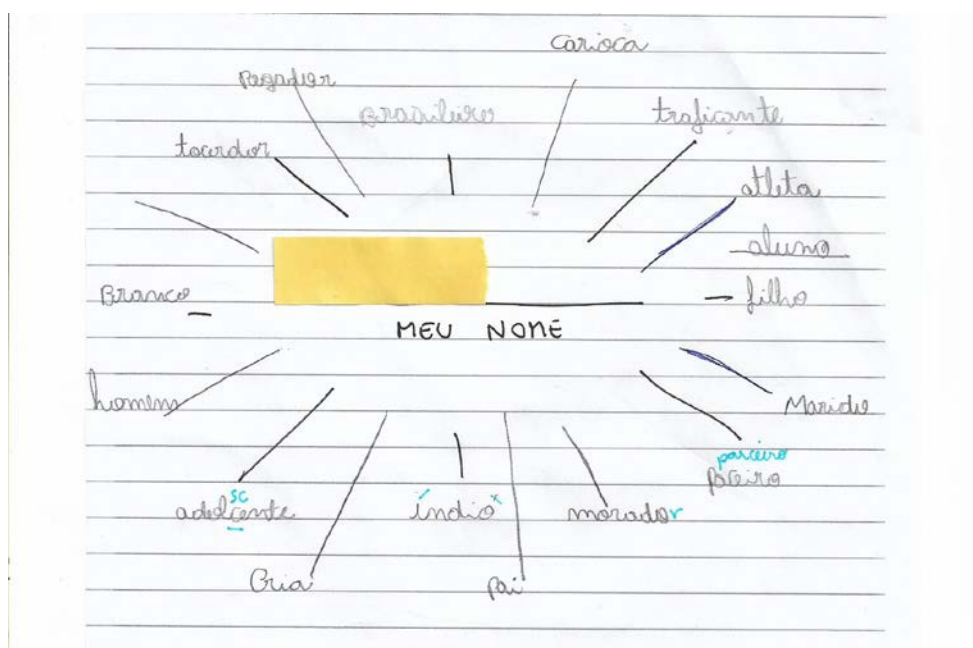 Carioca
Pegador
Brasileiro
traficante
tocador
atleta
aluno
Branco
filho
MEU NOME
homem
Marido
parceiro
pareiro
sc
adolcente
índio x
morador
Cria
Pai